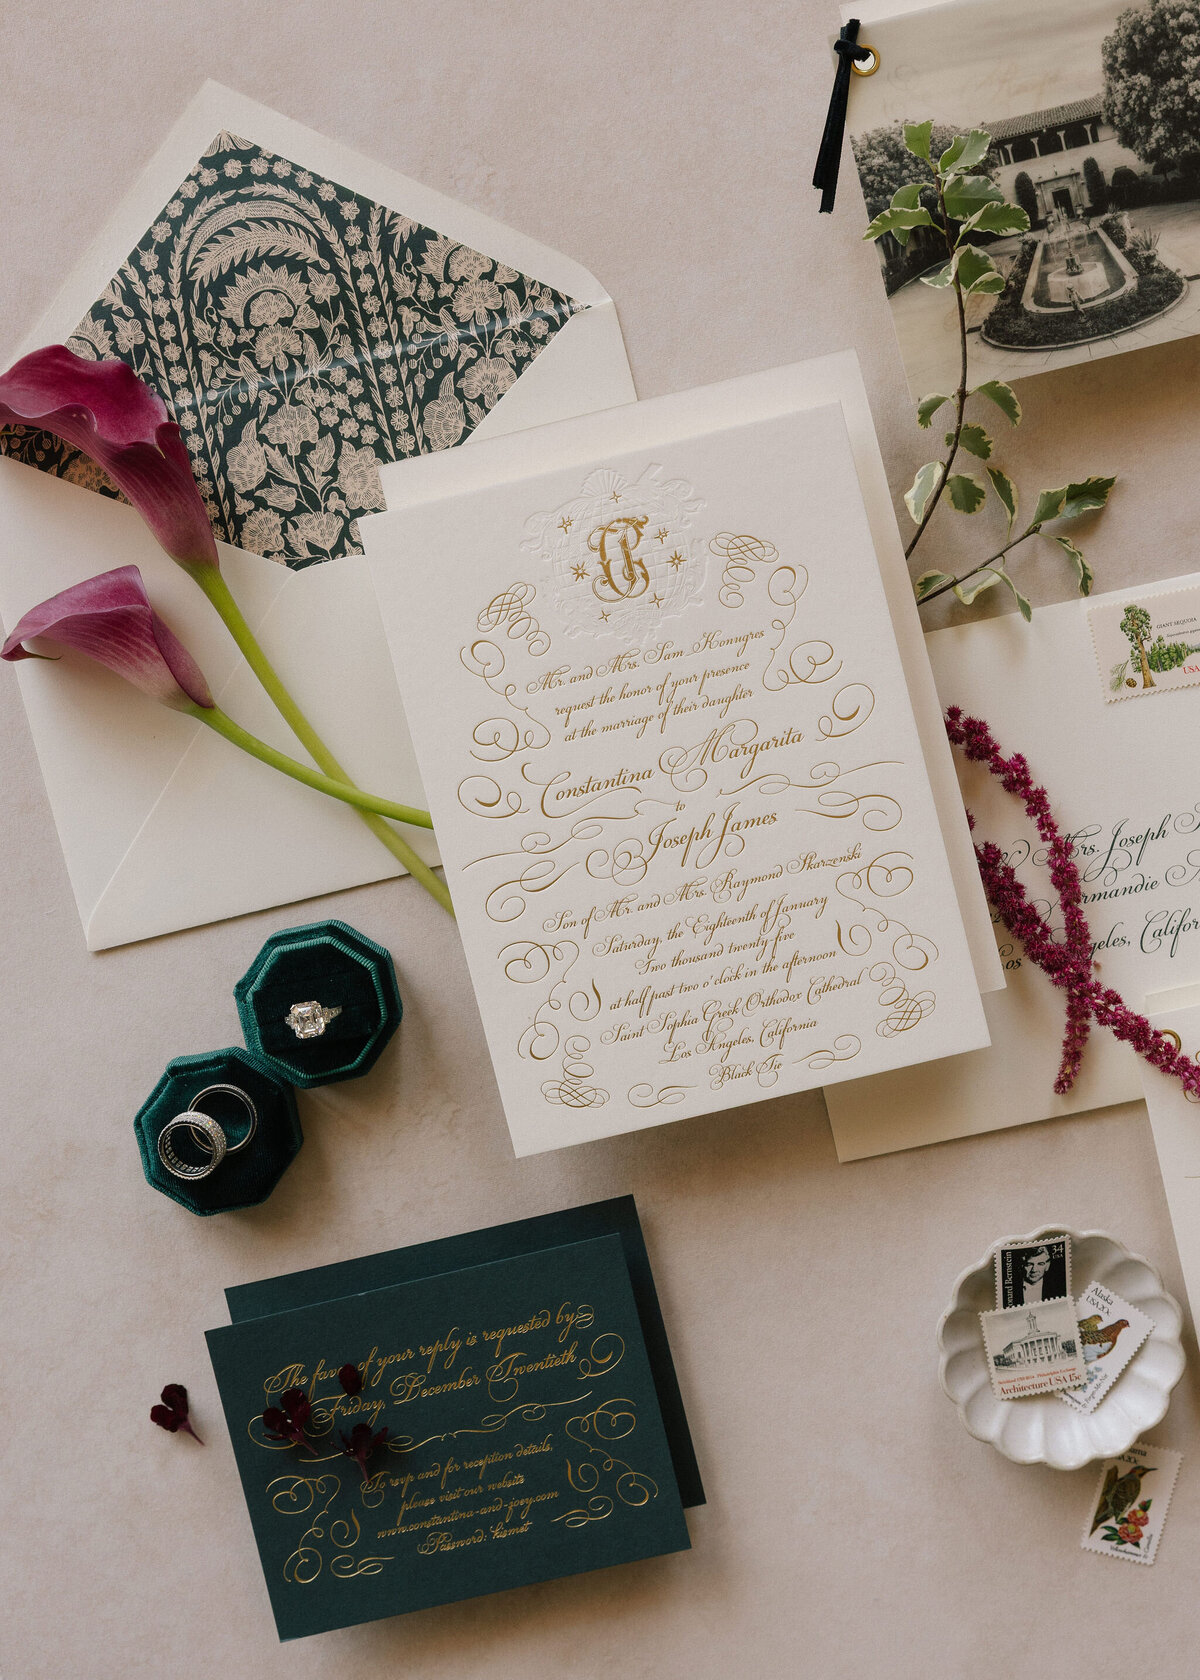 Mr. and Mrs. Sam Konugres
request the honor of your presence
at the marriage of their daughter
Constantina Margarita
to
Joseph James
Son of Mr. and Mrs. Raymond Skarzenski
Saturday, the Eighteenth of January
Two thousand twenty-five
at half past two o'clock in the afternoon
Saint Sophia Greek Orthodox Cathedral
Los Angeles, California
Black Tie
GIANT SEQUOIA
USA
Mrs. Joseph
The favor of your reply is requested by
Friday, December Twentieth
To rsvp and for reception details,
please visit our website
www.constantina-and-joey.com
Password: kismet
34
USA
Bernstein
Alaska
USA 20c
Architecture USA 15c